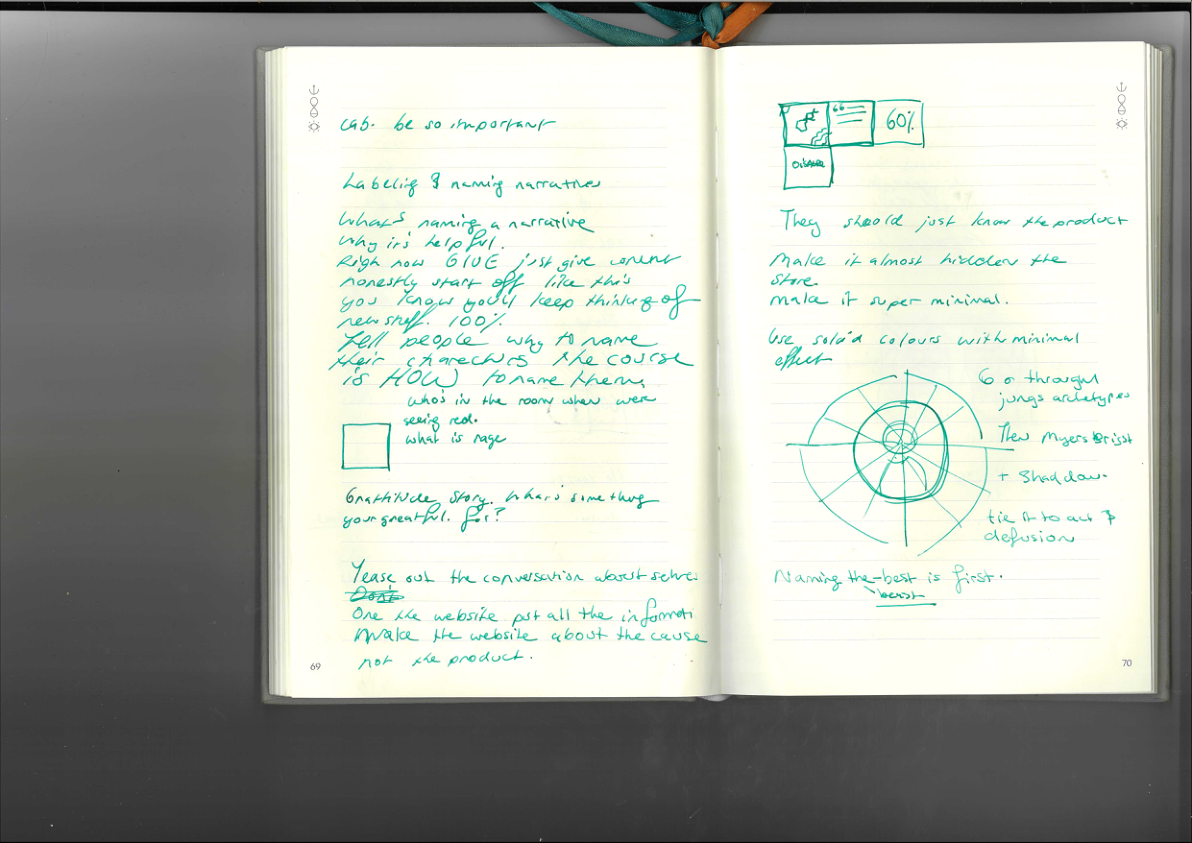 cab. be so important
Labelig & naming narratives
What's naming a narrative
why it's helpful.
Righ now GIVE just give conent
honestly start off like this
you know you'll keep thinking of
new stuff. 100%
Tell people why to name
their charecturs the course
is HOW to name them,
who's in the room when were
seeing red.
what is rage
Grattitude story. What's something
your greatful. for?
Tease out the conversation about selves
Dont
One the website put all the informati
Make the website about the cause
not the product.
69
60%
They should just know the product
Make it almost hidden the
store.
make it super minimal.
Use solid colours with minimal
effect
6 o through
jungs archetypes
Then Myers Brisst
+ Shaddow.
tie it to act &
defusion
Naming the best is first.
beast
70